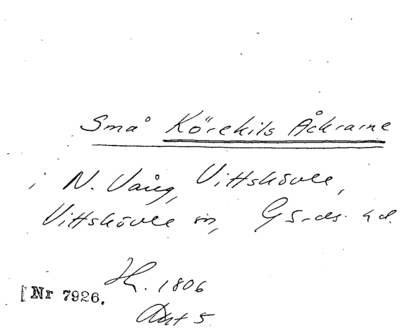 Små Körekils Åkrarne
i N. Vång, Vittskövle,
Vittskövle sn, Gärds hd.
Hy. 1806
[Nr 7926.
Akt 5